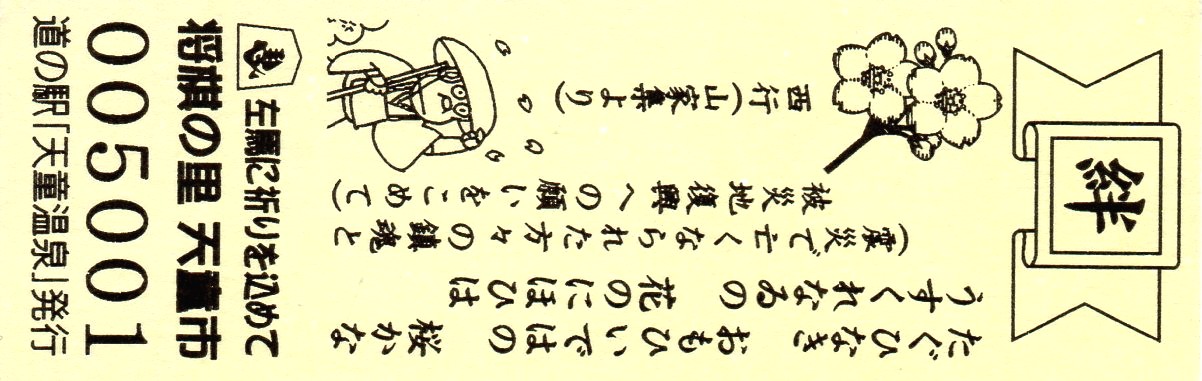 絆
たぐひなき　おもひいではの　桜かな
うすくれなゐの　花のにほひは
(震災で亡くなられた方々の鎮魂と
被災地復興への願いをこめて)
西行(山家集より)
馬
左馬に祈りを込めて
将棋の里 天童市
005001
道の駅「天童温泉」発行